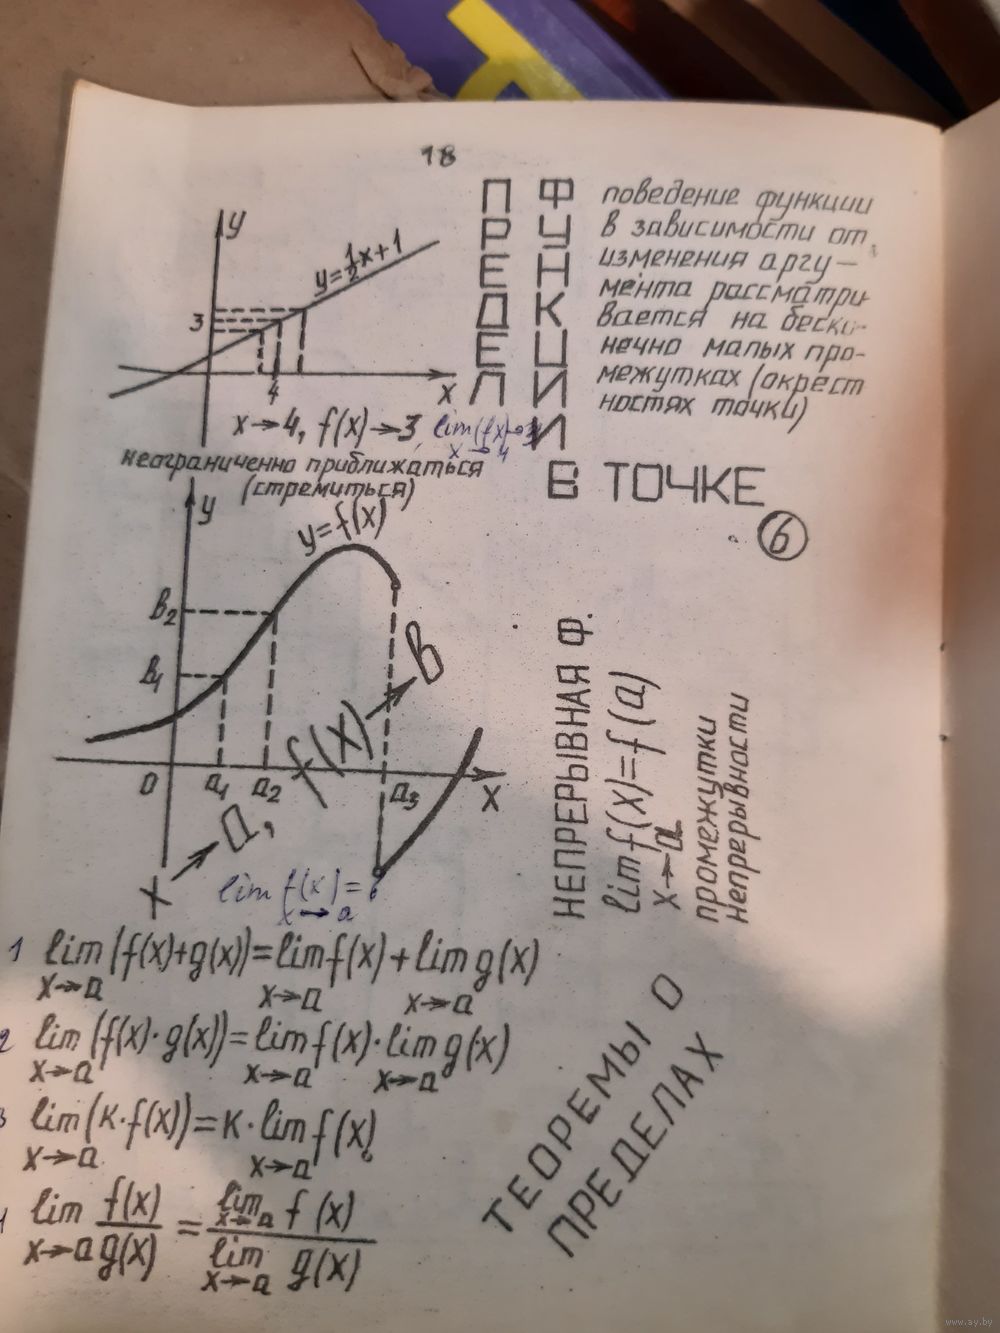 18
ПРЕДЕЛ
ФУНКЦИИ
В ТОЧКЕ
6
поведение функции
в зависимости от
изменения аргу—
мента рассматри
вается на беско-
нечно малых про-
межутках (окрест
ностях точки)
y
y=½x+1
3
4
x
x→4, f(x)→3, lim(f(x)→3
x→4
неограниченно приближаться
(стремиться)
y
y=f(x)
в₂
в₁
0 a₁ a₂ a₃ x
x→a, f(x)→в
lim f(x)=в
x→a
НЕПРЕРЫВНАЯ Ф.
lim f(x)=f(a)
x→a
промежутки
непрерывности
1 lim(f(x)+g(x))=lim f(x)+lim g(x)
x→a x→a x→a
2 lim(f(x)·g(x))=lim f(x)·lim g(x)
x→a x→a x→a
3 lim(к·f(x))=к·lim f(x)
x→a x→a
lim f(x)/g(x) = lim f(x)/lim g(x)
x→a x→a x→a
ТЕОРЕМЫ О
ПРЕДЕЛАХ
www.ay.by